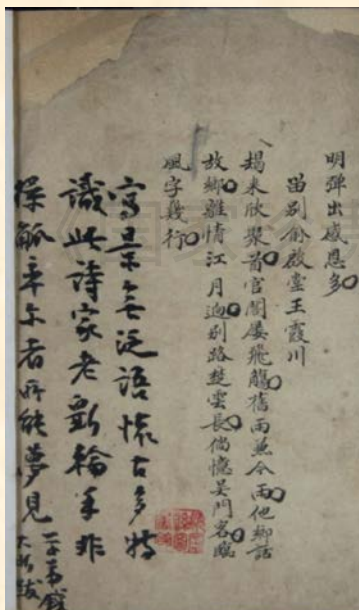 明彈出感恩多
留別俞啟堂王霞川
朅来欣聚首官閣屢飛觴舊雨兼今雨他鄉話
故鄉離情江月逈別路楚雲長倘憶吳門客臨
風字幾行
寫景無泛語懷古多特
識此詩家老斲輪手非
操觚率尔者所能夢見